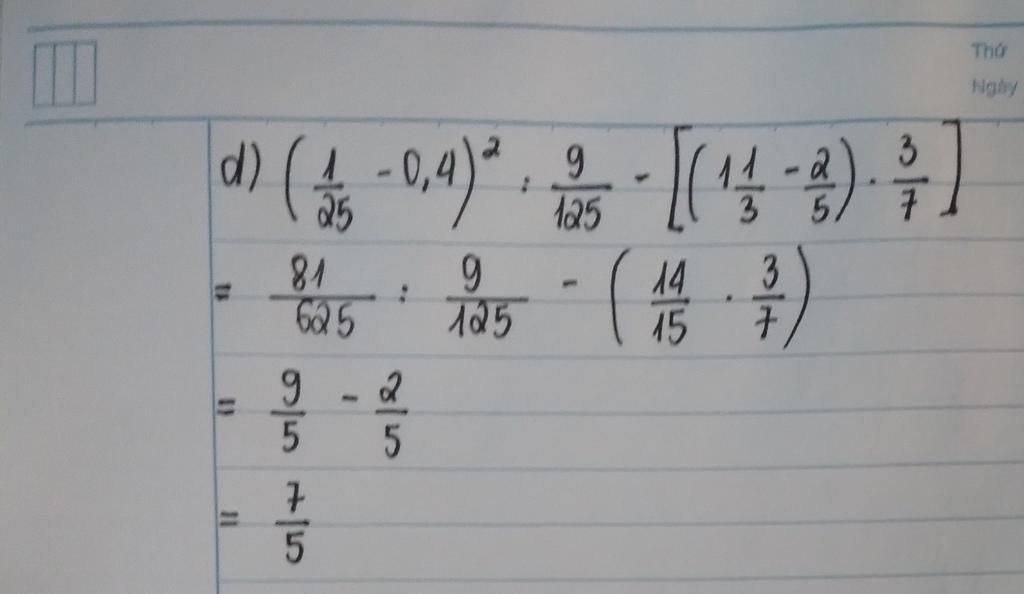 Thứ
Ngày
d) (1/25 - 0,4)² : 9/125 - [(1 1/3 - 2/5) . 3/7]
= 81/625 : 9/125 - (14/15 . 3/7)
= 9/5 - 2/5
= 7/5